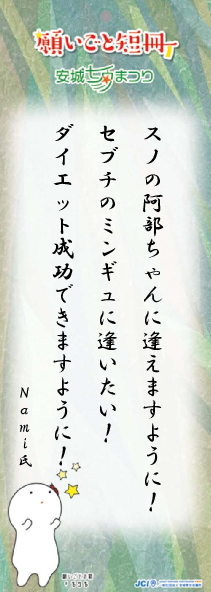 願いごと短冊
安城七夕まつり
スノの阿部ちゃんに逢えますように!
セブチのミンギュに逢いたい!
ダイエット成功できますように!
Nami氏
JCI